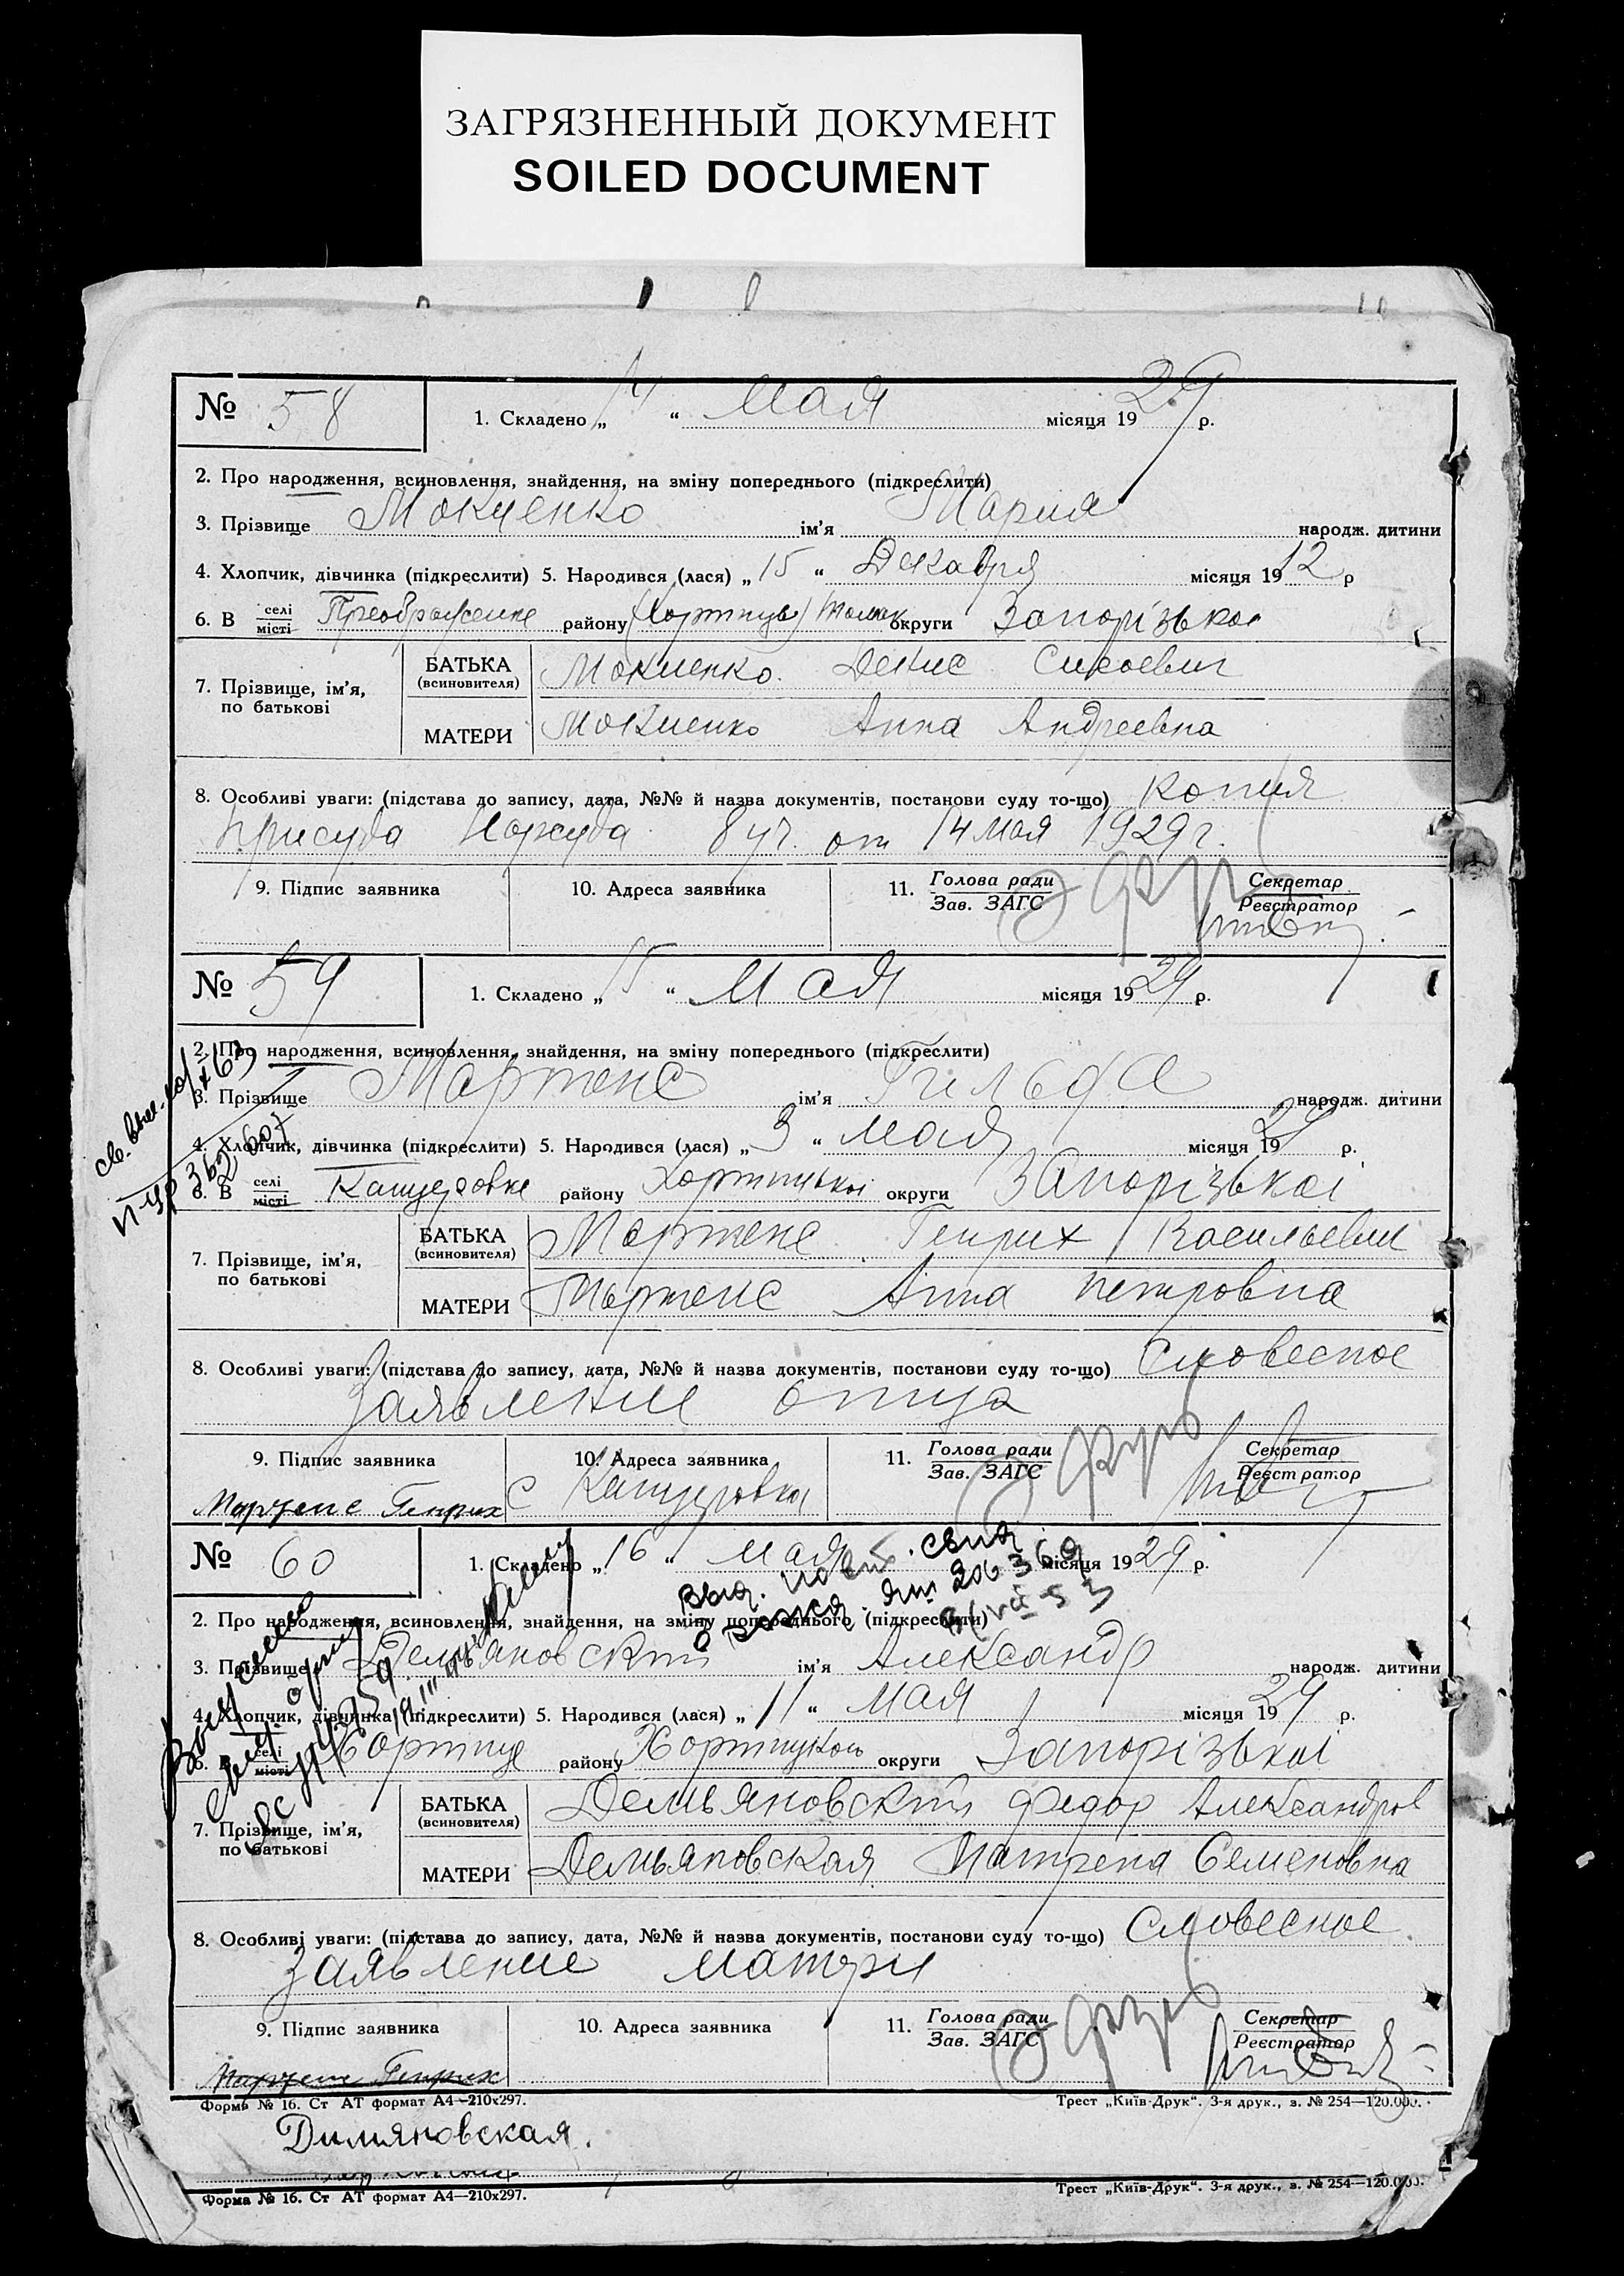 ЗАГРЯЗНЕННЫЙ ДОКУМЕНТ
SOILED DOCUMENT
№ 58
1. Складено „ 14 “ Мая місяця 1929 р.
2. Про народження, всиновлення, знайдення, на зміну попереднього (підкреслити)
3. Прізвище Мокиенко ім’я Мария народж. дитини
4. Хлопчик, дівчинка (підкреслити) 5. Народився (лася) „ 15 “ Декабря місяця 1912 р
6. В селі місті Преображенке району (Хортице) округи Запорізькоі
7. Прізвище, ім’я, по батькові
БАТЬКА (всиновителя) Мокиенко Денис Сисоевич
МАТЕРИ Мокиенко Анна Андреевна
8. Особливі уваги: (підстава до запису, дата, №№ й назва документів, постанови суду то-що) Копия
присуда Нарсуда 8 уч. от 14 мая 1929 г.
9. Підпис заявника 10. Адреса заявника 11. Голова ради Зав. ЗАГС Секретар Реєстратор
№ 59
1. Складено „ 15 “ Мая місяця 1929 р.
2. Про народження, всиновлення, знайдення, на зміну попереднього (підкреслити)
3. Прізвище Мартенс ім’я Гильда народж. дитини
4. Хлопчик, дівчинка (підкреслити) 5. Народився (лася) „ 3 “ мая місяця 1929 р.
6. В селі місті Канцеровке району Хортицькоі округи Запорізькоі
7. Прізвище, ім’я, по батькові
БАТЬКА (всиновителя) Мартенс Генрих Васильевич
МАТЕРИ Мартенс Анна Петровна
8. Особливі уваги: (підстава до запису, дата, №№ й назва документів, постанови суду то-що) Словесное
заявление отца
9. Підпис заявника 10. Адреса заявника 11. Голова ради Зав. ЗАГС Секретар Реєстратор
Мартенс Генрих С Канцеровка
№ 60
1. Складено „ 16 “ мая місяця 1929 р.
2. Про народження, всиновлення, знайдення, на зміну попереднього (підкреслити)
3. Прізвище Демьяновский ім’я Александр народж. дитини
4. Хлопчик, дівчинка (підкреслити) 5. Народився (лася) „ 11 “ мая місяця 1929 р.
6. В селі місті Хортице району Хортицкои округи Запорізькоі
7. Прізвище, ім’я, по батькові
БАТЬКА (всиновителя) Демьяновский Федор Александров
МАТЕРИ Демьяновская Матрена Семеновна
8. Особливі уваги: (підстава до запису, дата, №№ й назва документів, постанови суду то-що) Словесное
заявление матери
9. Підпис заявника 10. Адреса заявника 11. Голова ради Зав. ЗАГС Секретар Реєстратор
Мартенс Генрих
Форма № 16. Ст АТ формат А4—210х297. Трест „Київ-Друк“. 3-я друк., з. № 254—120.000.
Димяновская.
Форма № 16. Ст АТ формат А4—210х297. Трест „Київ-Друк“. 3-я друк., з. № 254—120.000.